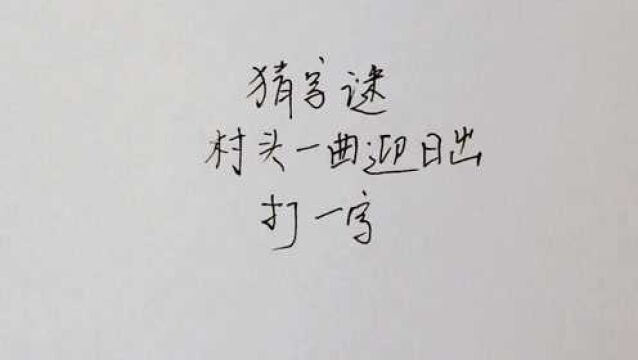 猜字谜
村头一曲迎日出
打一字